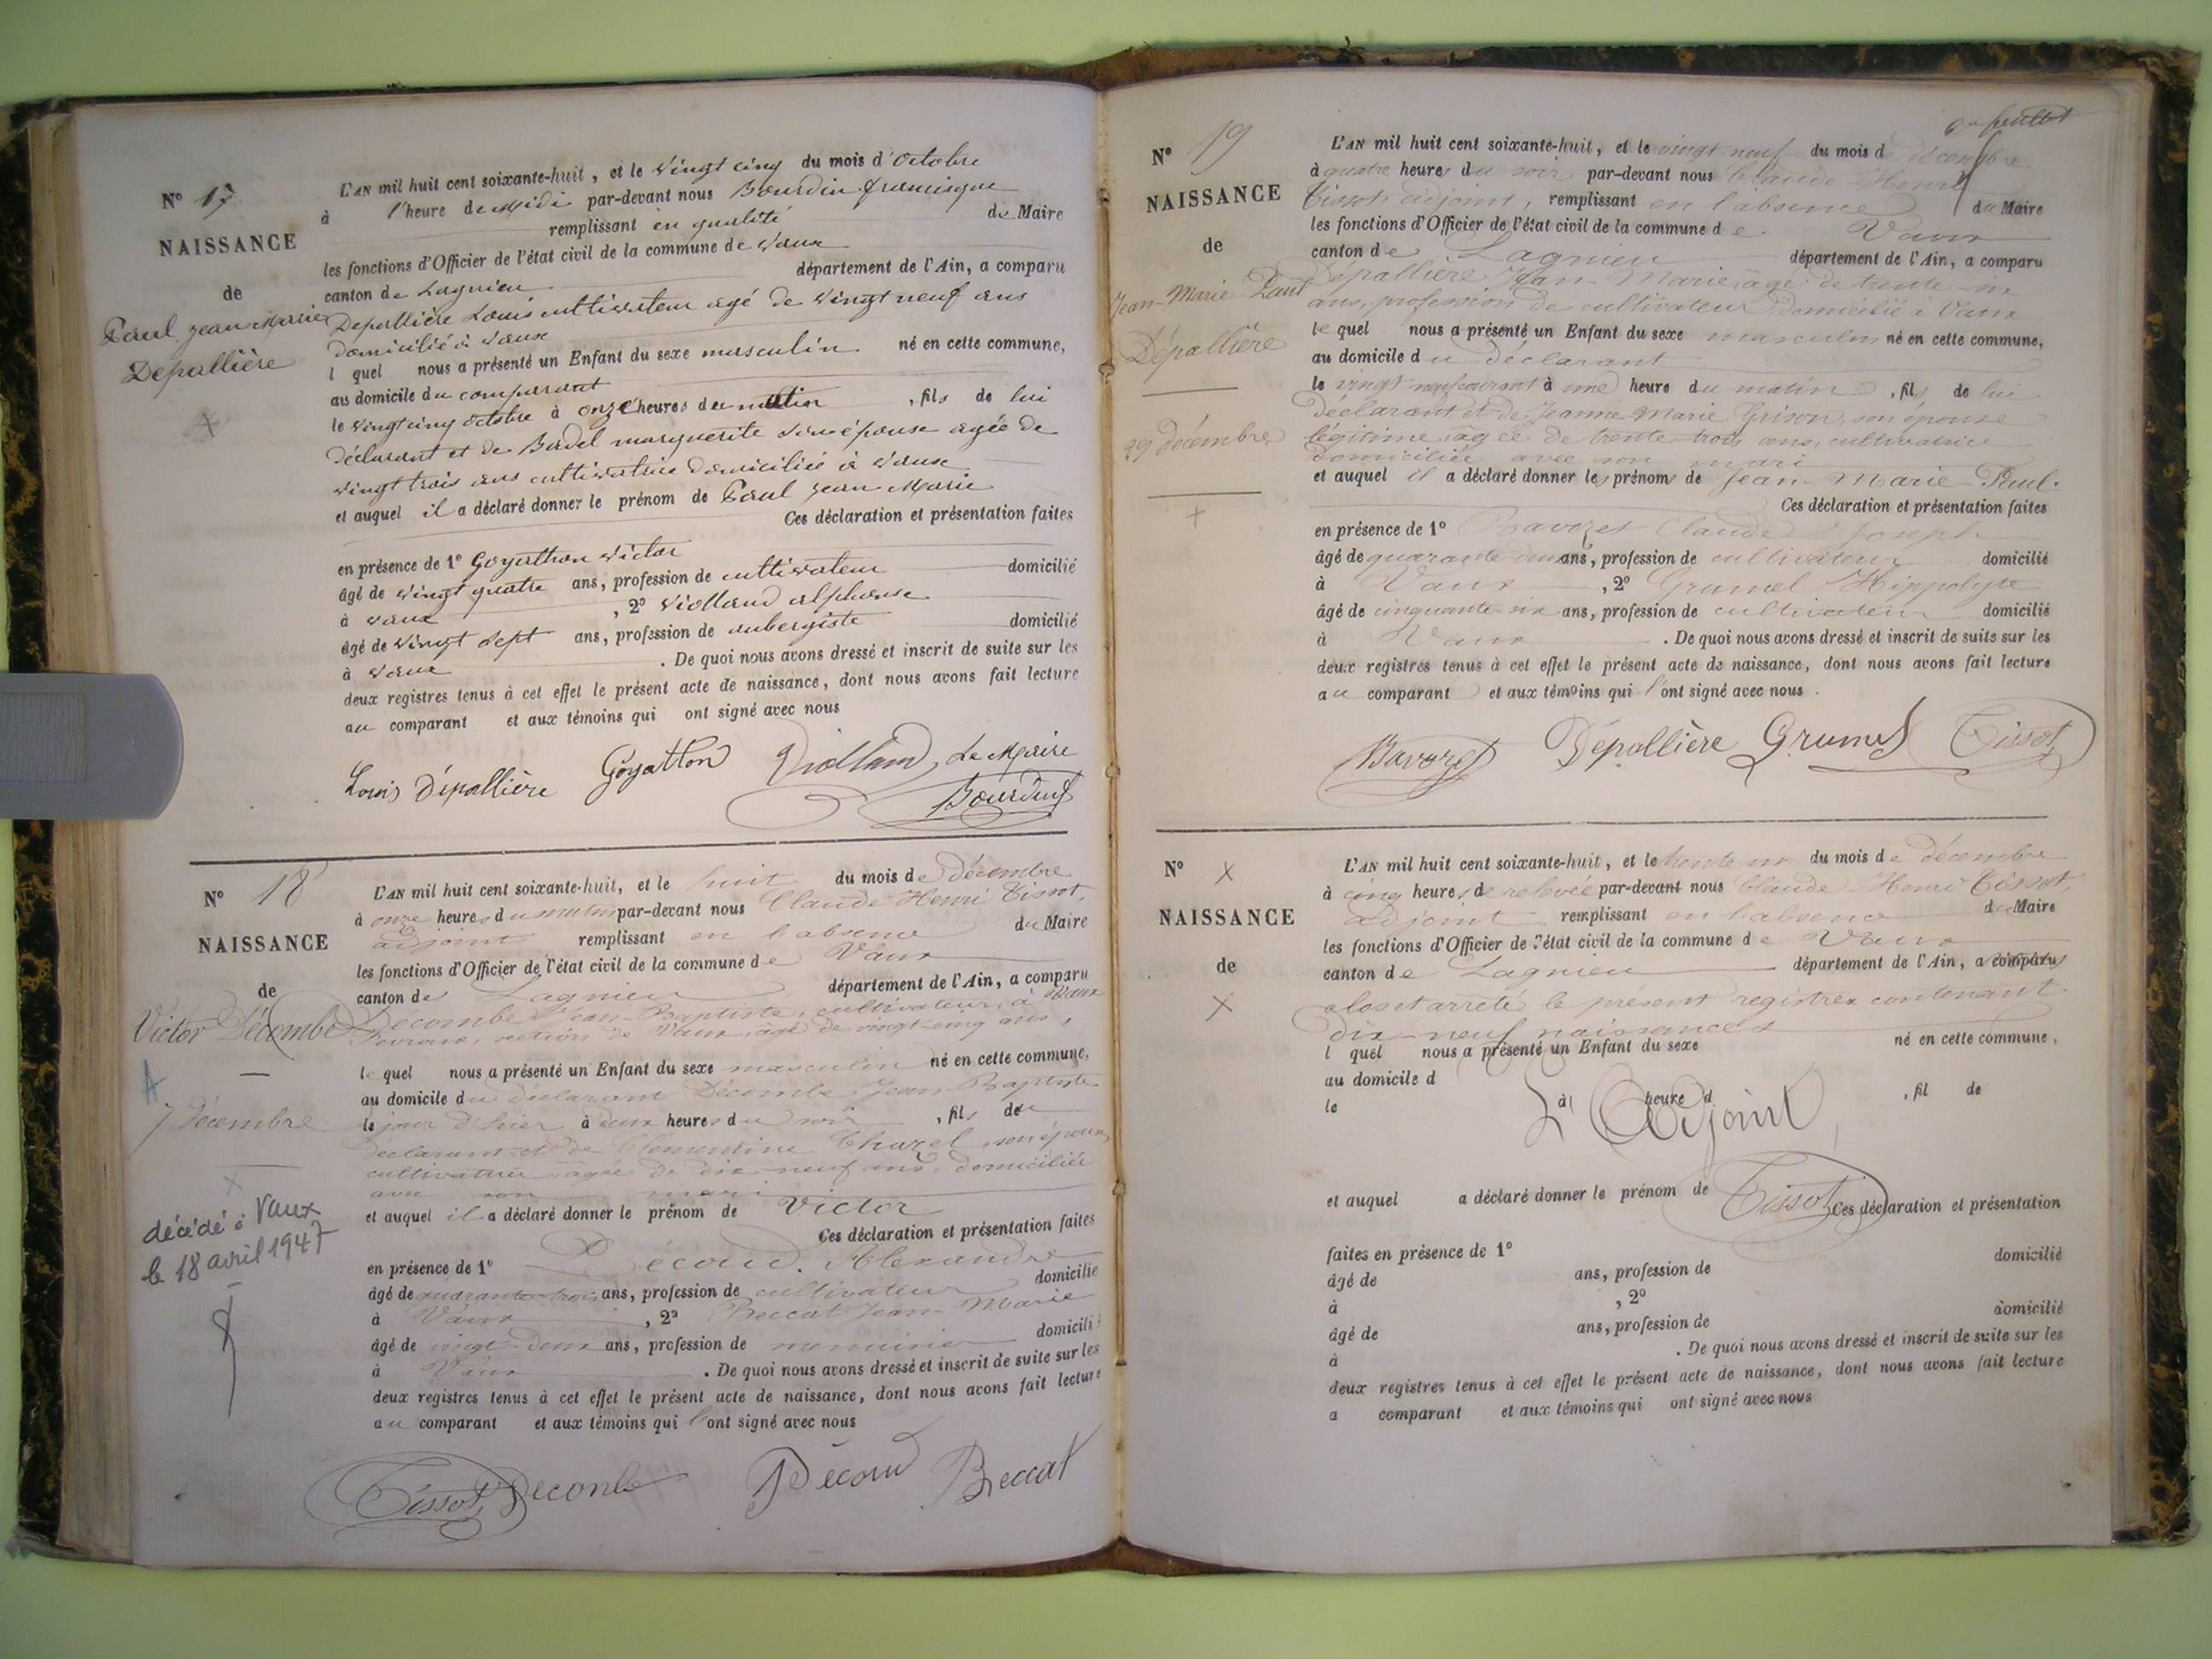 N° 17
NAISSANCE
de
Paul Jean Marie
Depallière
L'AN mil huit cent soixante-huit, et le vingt cinq du mois d'octobre
à l'heure de Midi par-devant nous Bourdin francisque
remplissant en qualité de Maire
les fonctions d'Officier de l'état civil de la commune de Vaux
canton de Lagnieu département de l'Ain, a comparu
Depallière Louis cultivateur agé de vingt neuf ans
domicilié à Vaux
l quel nous a présenté un Enfant du sexe masculin né en cette commune,
au domicile du comparant
le vingt cinq octobre à onze heures du matin, fils de lui
déclarant et de Badel marguerite son épouse agée de
vingt trois ans cultivatrice domiciliée à Vaux
et auquel il a déclaré donner le prénom de Paul Jean Marie
Ces déclaration et présentation faites
en présence de 1° Goyatton victor
âgé de vingt quatre ans, profession de cultivateur domicilié
à vaux, 2° Violland alphonse
âgé de vingt sept ans, profession de aubergiste domicilié
à vaux. De quoi nous avons dressé et inscrit de suite sur les
deux registres tenus à cet effet le présent acte de naissance, dont nous avons fait lecture
au comparant et aux témoins qui ont signé avec nous
Louis Dépallière Goyatton Violland Le Maire
Bourdin
N° 18
NAISSANCE
de
Victor Décombe
7 décembre
décédé à Vaux
le 18 avril 1947
L'AN mil huit cent soixante-huit, et le huit du mois de décembre
à onze heures du matin par-devant nous Claude Henri Tissot,
adjoint remplissant en l'absence du Maire
les fonctions d'Officier de l'état civil de la commune de Vaux
canton de Lagnieu département de l'Ain, a comparu
Décombe Jean-Baptiste, cultivateur, à
section de Vaux, âgé de vingt-cinq ans,
lequel nous a présenté un Enfant du sexe masculin né en cette commune,
au domicile du déclarant Décombe Jean-Baptiste
le jour d'hier à deux heures du soir, fils du
déclarant et de Clémentine Charel, son épouse
cultivatrice, âgée de dix-neuf ans, domiciliée
avec son mari
et auquel il a déclaré donner le prénom de Victor
Ces déclaration et présentation faites
en présence de 1° Découd Alexandre
âgé de quarante-trois ans, profession de cultivateur domicilié
à Vaux, 2° Beccat Jean-Marie
âgé de vingt-deux ans, profession de menuisier domicilié
à Vaux. De quoi nous avons dressé et inscrit de suite sur les
deux registres tenus à cet effet le présent acte de naissance, dont nous avons fait lecture
au comparant et aux témoins qui l'ont signé avec nous
Tissot Decombe Découd Beccat
N° 19
NAISSANCE
de
Jean-Marie Paul
Dépallière
29 décembre
feuillet
L'AN mil huit cent soixante-huit, et le vingt neuf du mois d décembre
à quatre heures du soir par-devant nous Claude Henri
Tissot adjoint, remplissant en l'absence du Maire
les fonctions d'Officier de l'état civil de la commune de Vaux
canton de Lagnieu département de l'Ain, a comparu
Dépallière Jean-Marie, âgé de trente-un
ans, profession de cultivateur, domicilié à Vaux
lequel nous a présenté un Enfant du sexe masculin né en cette commune,
au domicile du déclarant
le vingt neuf courant à une heure du matin, fils de lui
déclarant et de Jeanne-Marie Grison, son épouse
légitime, âgée de trente-trois ans, cultivatrice
domiciliée avec son mari
et auquel il a déclaré donner les prénoms de Jean-Marie-Paul.
Ces déclaration et présentation faites
en présence de 1° Bavozet Claude Joseph
âgé de quarante deux ans, profession de cultivateur domicilié
à Vaux, 2° Grumel Hippolyte
âgé de cinquante-six ans, profession de cultivateur domicilié
à Vaux. De quoi nous avons dressé et inscrit de suite sur les
deux registres tenus à cet effet le présent acte de naissance, dont nous avons fait lecture
au comparant et aux témoins qui l'ont signé avec nous.
Bavozet Dépallière Grumel Tissot
N° X
NAISSANCE
de
X
L'AN mil huit cent soixante-huit, et le trente-un du mois de décembre
à cinq heures de relevée par-devant nous Claude Henri Tissot,
adjoint remplissant en l'absence du Maire
les fonctions d'Officier de l'état civil de la commune de Vaux
canton de Lagnieu département de l'Ain, a comparu
clos et arrêté le présent registre contenant
dix-neuf naissances
l quel nous a présenté un Enfant du sexe né en cette commune,
au domicile d
le à heure d, fil de
L'Adjoint
et auquel a déclaré donner le prénom de Tissot Ces déclaration et présentation
faites en présence de 1° domicilié
âgé de ans, profession de
à, 2°
âgé de ans, profession de domicilié
à. De quoi nous avons dressé et inscrit de suite sur les
deux registres tenus à cet effet le présent acte de naissance, dont nous avons fait lecture
a comparant et aux témoins qui ont signé avec nous